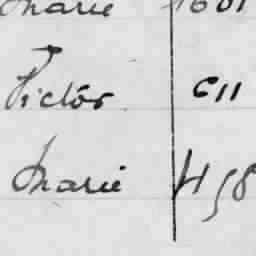 Marie
Victor C11
Marie H58